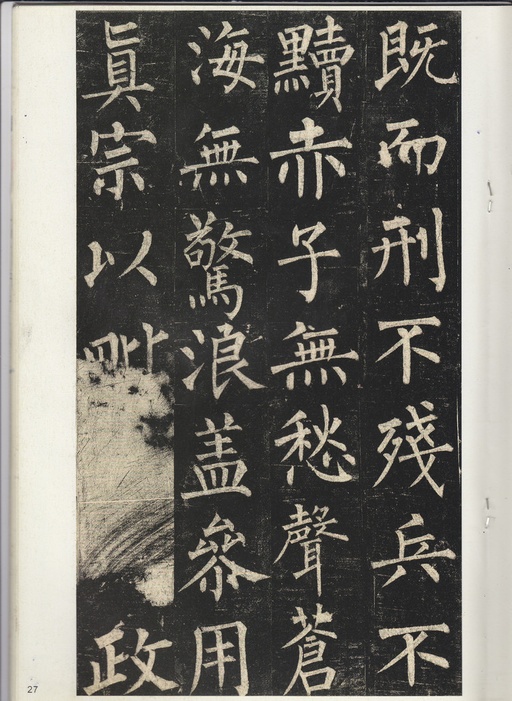 既而刑不殘兵不
黷赤子無愁聲蒼
海無驚浪盖參用
眞宗以
政
27